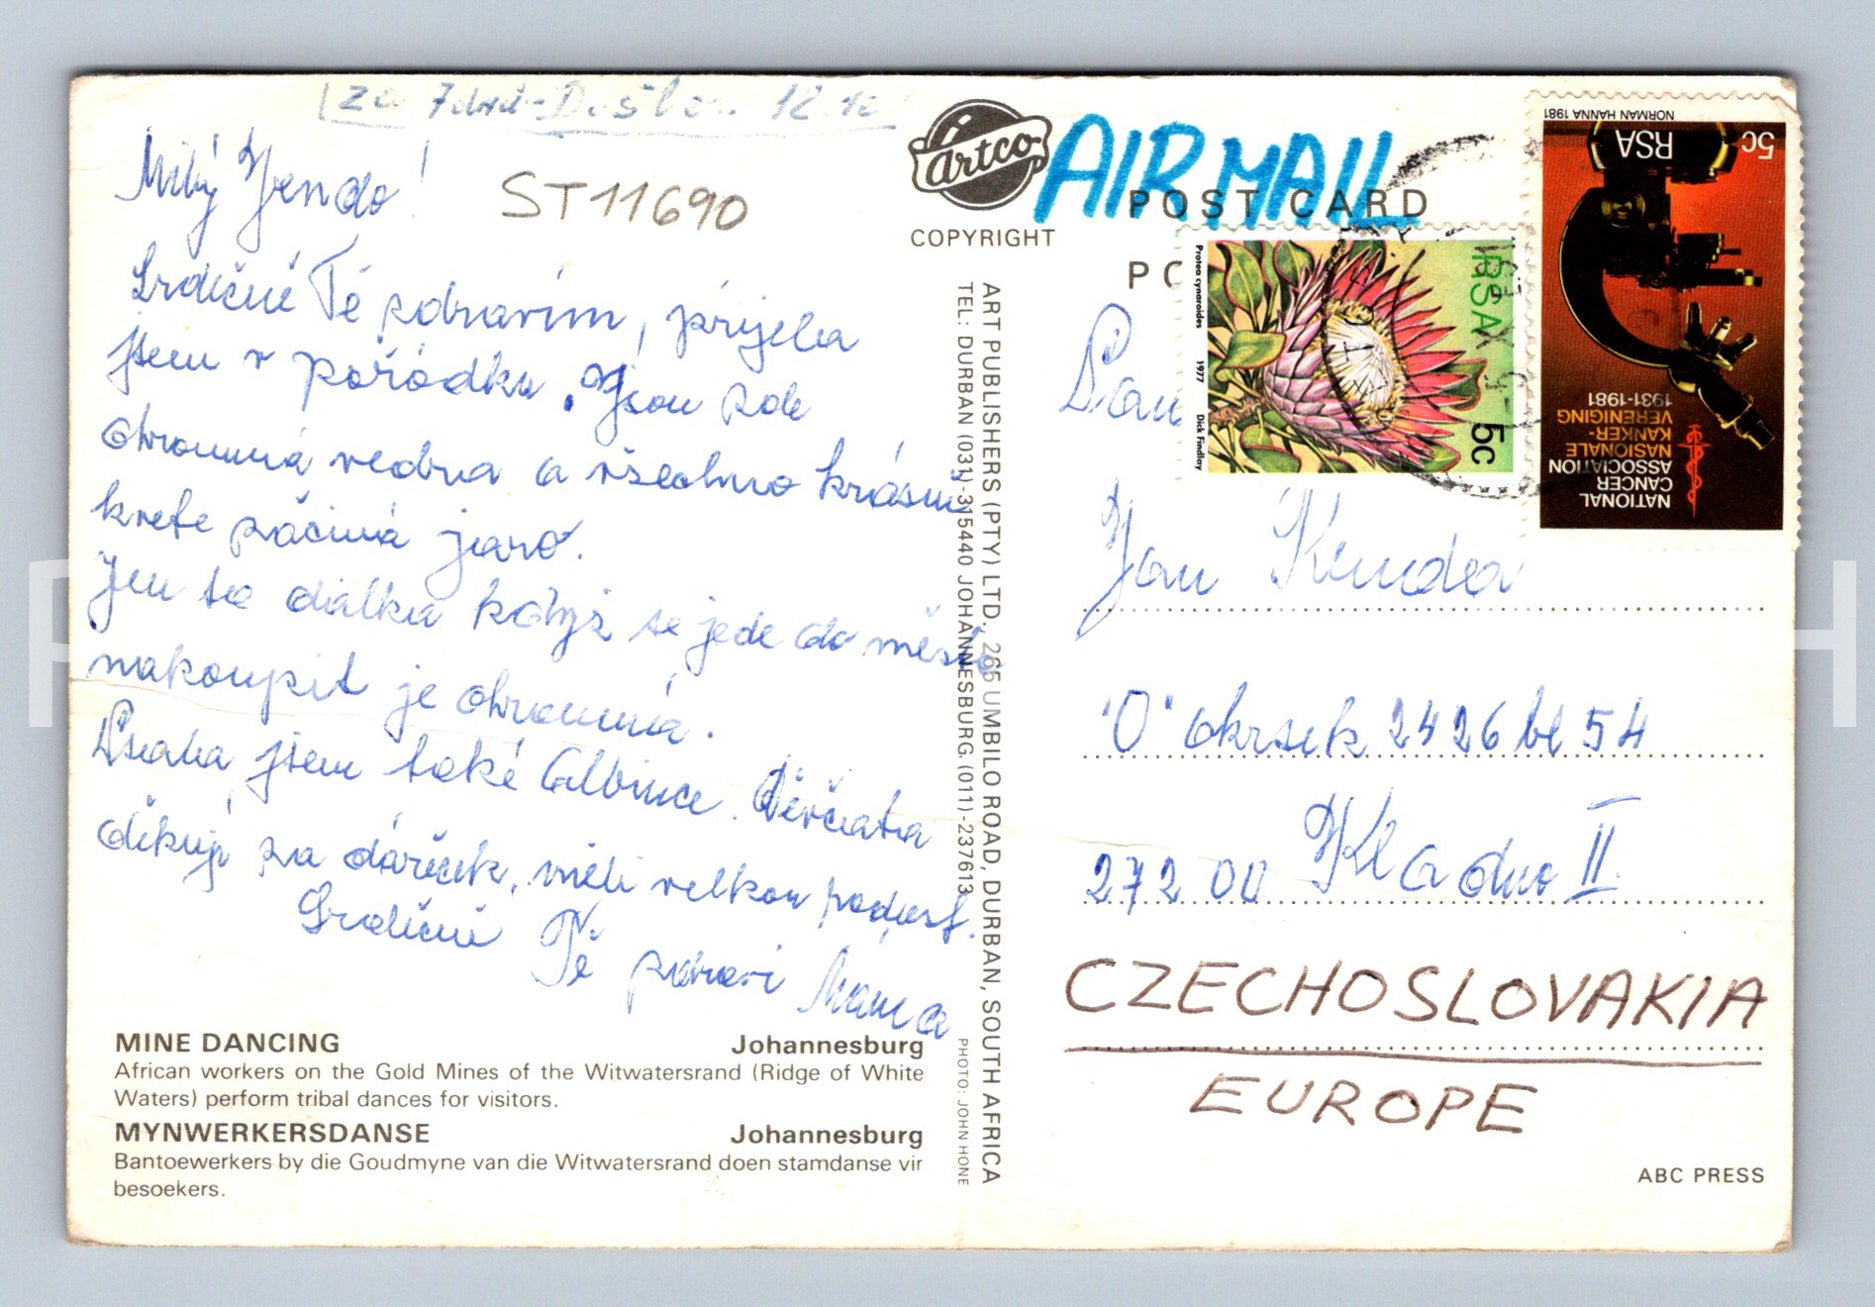 Za 7 dnů - Došlo 12.10
Milý Jendo!
ST11690
Srdečně Tě zdravím, přijela
jsem v pořádku. Jsou zde
ohromná vedra a všechno krásně
kvete začíná jaro.
Jen ta dálka když se jede do města
nakoupit je ohromná.
Psala jsem také Albince. Děvčata
děkují za dáreček, měli velkou radost.
Srdečně Tě zdraví Máma
MINE DANCING Johannesburg
African workers on the Gold Mines of the Witwatersrand (Ridge of White
Waters) perform tribal dances for visitors.
MYNWERKERSDANSE Johannesburg
Bantoewerkers by die Goudmyne van die Witwatersrand doen stamdanse vir
besoekers.
Artco
COPYRIGHT
ART PUBLISHERS (PTY) LTD. 265 UMBILO ROAD, DURBAN, SOUTH AFRICA
TEL: DURBAN (031)-315440 JOHANNESBURG. (011)-237613
PHOTO: JOHN HONE
AIR MAIL
POST CARD
PO
Protea cynaroides 1977 Dick Findlay
RSA
5c
NORMAN HANNA 1981
5c
RSA
NATIONAL
CANCER
ASSOCIATION
NASIONALE
KANKER-
VERENIGING
1931-1981
Pan
Jan Kendra
"O" okrsek 2426 bl 54
272 00 Kladno II
CZECHOSLOVAKIA
EUROPE
ABC PRESS